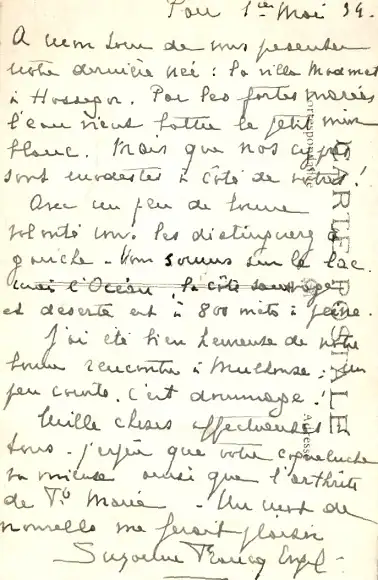 Pau 1er Mai 39.
A mon tour de vous présenter
notre dernière née : la villa
à Hossegor. Par les fortes marées
l'eau vient battre le petit mur
blanc. Mais que nos cyprès
sont modestes à côté de vôtres !
Avec un peu de bonne
volonté vous les distinguerez à
gauche - Nous sommes sur le lac.
mais l'Océan la côte sauvage
et déserte est à 800 mets à peine.
J'ai été bien heureuse de notre
bonne rencontre à Mulhouse, un
peu courte, c'est dommage !
Mille choses affectueuses à
tous. J'espère que votre coqueluche
va mieux ainsi que l'arthrite
de Marie - Un mot de
nouvelles me ferait plaisir
Suzanne
CARTE POSTALE
Correspondance
Adresse